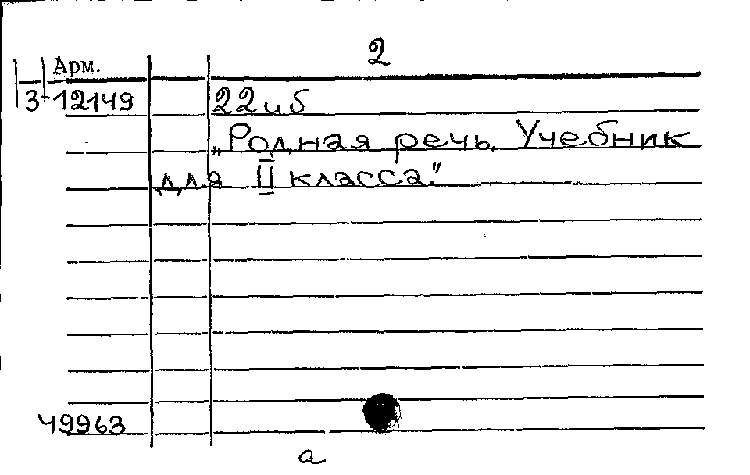 2
Арм.
3-12149 22 иб
„Родная речь. Учебник
для II класса."
49963
а